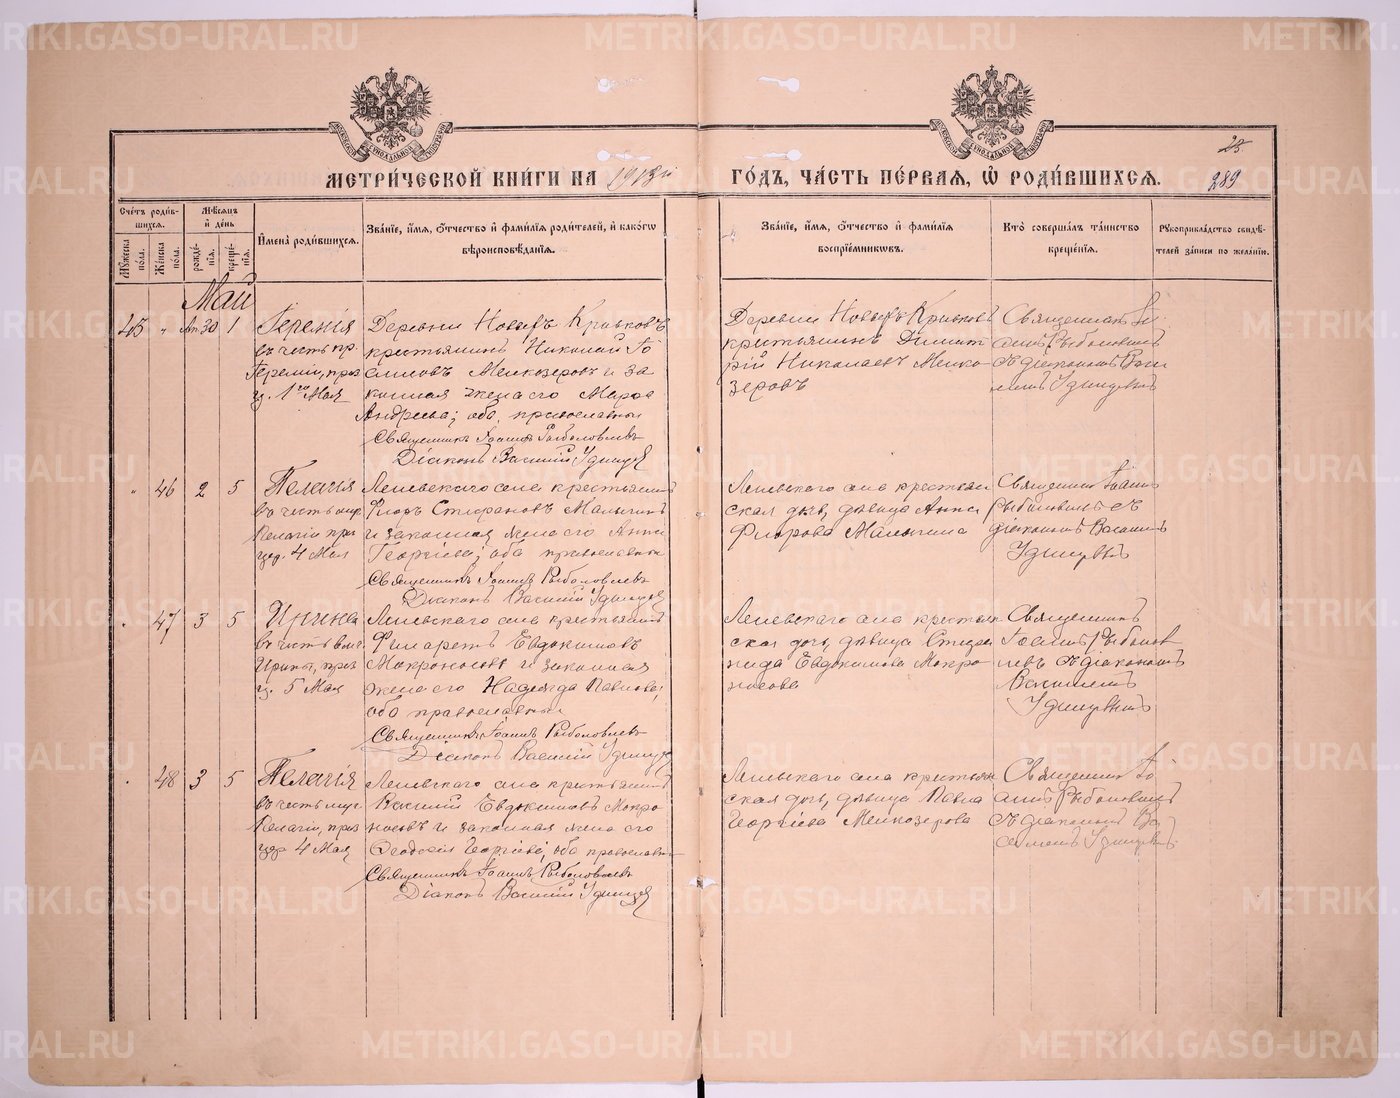 МЕТРИ́ЧЕСКОЙ КНИ́ГИ НА 1913й ГО́ДЪ, ЧА́СТЬ ПЕ́РВАЯ, Ѿ РОДИ́ВШИХСЯ.
23.
289
Сче́тъ роди́в-
шихся.
Му́жеска по́ла.
Же́нска по́ла.
Мѣ́сяцъ и҆ де́нь
рожде́-
нїя.
креще́-
нїя.
И҆мена̀ роди́вшихся.
Зва́нїе, и҆́мя, ѻ҆́тчество и҆ фами́лїя роди́телей, и҆ како́гѡ
вѣроисповѣ́данїя.
Зва́нїе, и҆́мя, ѻ҆́тчество и҆ фами́лїя
воспрїе́мникѡвъ.
Кто̀ соверша́лъ та́инство
креще́нїя.
Рꙋкоприкла́дство свидѣ́-
телей за́писи по жела́нїю.
Май
45 " Ап. 30 1
Іеремія
въ честь пр.
Іереміи, праз
ц. 1го Мая
Деревни Новыхъ Кривковъ
крестьянинъ Николай Іо
силовъ Мелкозеровъ и за
конная жена его Марѳа
Андреева; оба православны
Священникъ Іоаннъ Рыболовлевъ
Діаконъ Василій Удинцевъ
Деревни Новыхъ Кривковъ
крестьянинъ Димит
рій Николаевъ Мелко-
зеровъ
Священникъ Іо
аннъ Рыболовлевъ
съ діакономъ Васи
ліемъ Удинцевымъ
" 46 2 5
Пелагія
въ честь муч
Пелагіи праз
цер. 4 Мая
Леневскаго села крестьянинъ
Ѳиоръ Стефановъ Малыгинъ
и законная жена его Анна
Георгіева; оба православны
Священникъ Іоаннъ Рыболовлевъ
Діаконъ Василій Удинцевъ
Леневскаго села крестьян
ская дочь, дѣвица Анна
Фиорова Малыгина
Священникъ Іоаннъ
Рыболовлевъ съ
діакономъ Василіемъ
Удинцевымъ
. 47 3 5
Ирина
въ честь вмч
Ирины, праз
ц. 5 Мая
Леневскаго села крестьянинъ
Филаретъ Евдокимовъ
Мокроносовъ и законная
жена его Надежда Павлова;
оба православны
Священникъ Іоаннъ Рыболовлевъ
Діаконъ Василій Удинцевъ
Леневскаго села крестьян
ская дочь, дѣвица Степа
нида Евдокимова Мокро
носова
Священникъ
Іоаннъ Рыболов
левъ съ діакономъ
Василіемъ
Удинцевымъ
. 48 3 5
Пелагія
въ честь муч
Пелагіи, праз
цер 4 Мая
Леневскаго села крестьянинъ
Василій Евдокимовъ Мокро
носовъ и законная жена его
Ѳеодосія Георгіева; оба православны
Священникъ Іоаннъ Рыболовлевъ
Діаконъ Василій Удинцевъ
Леневскаго села крестьян
ская дочь, дѣвица Павла
Георгіева Мелкозерова
Священникъ Іо
аннъ Рыболовлевъ
съ діакономъ Ва
силіемъ Удинцевымъ
METRIKI.GASO-URAL.RU